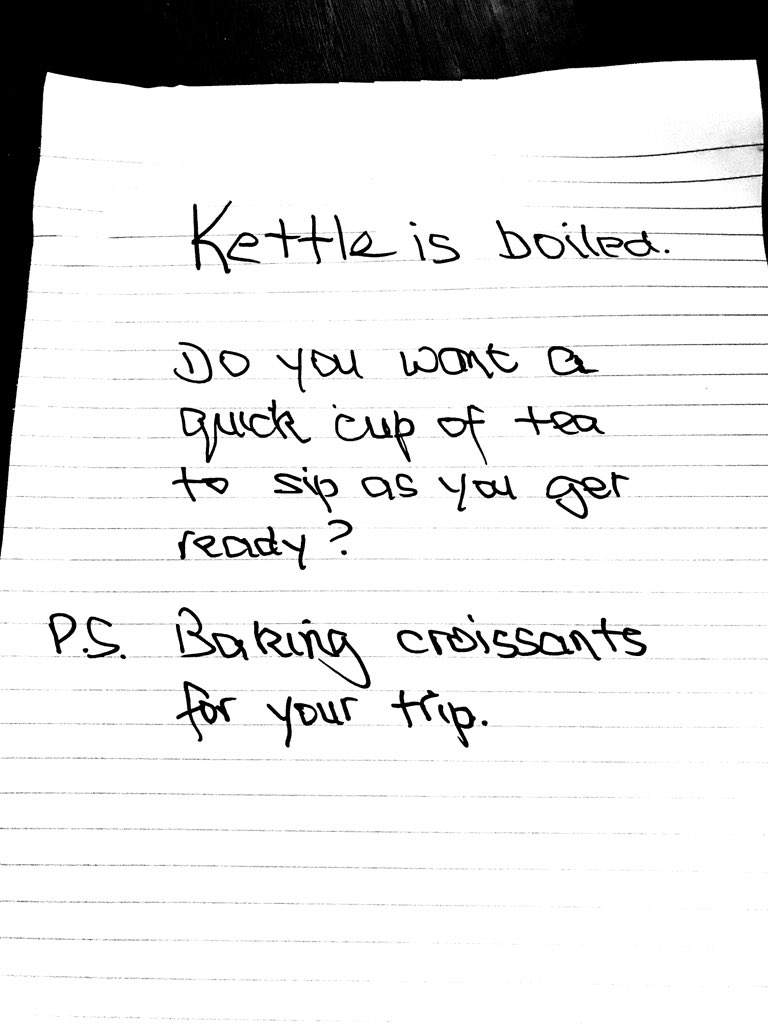 Kettle is boiled.
Do you want a
quick cup of tea
to sip as you get
ready?
P.S. Baking croissants
for your trip.